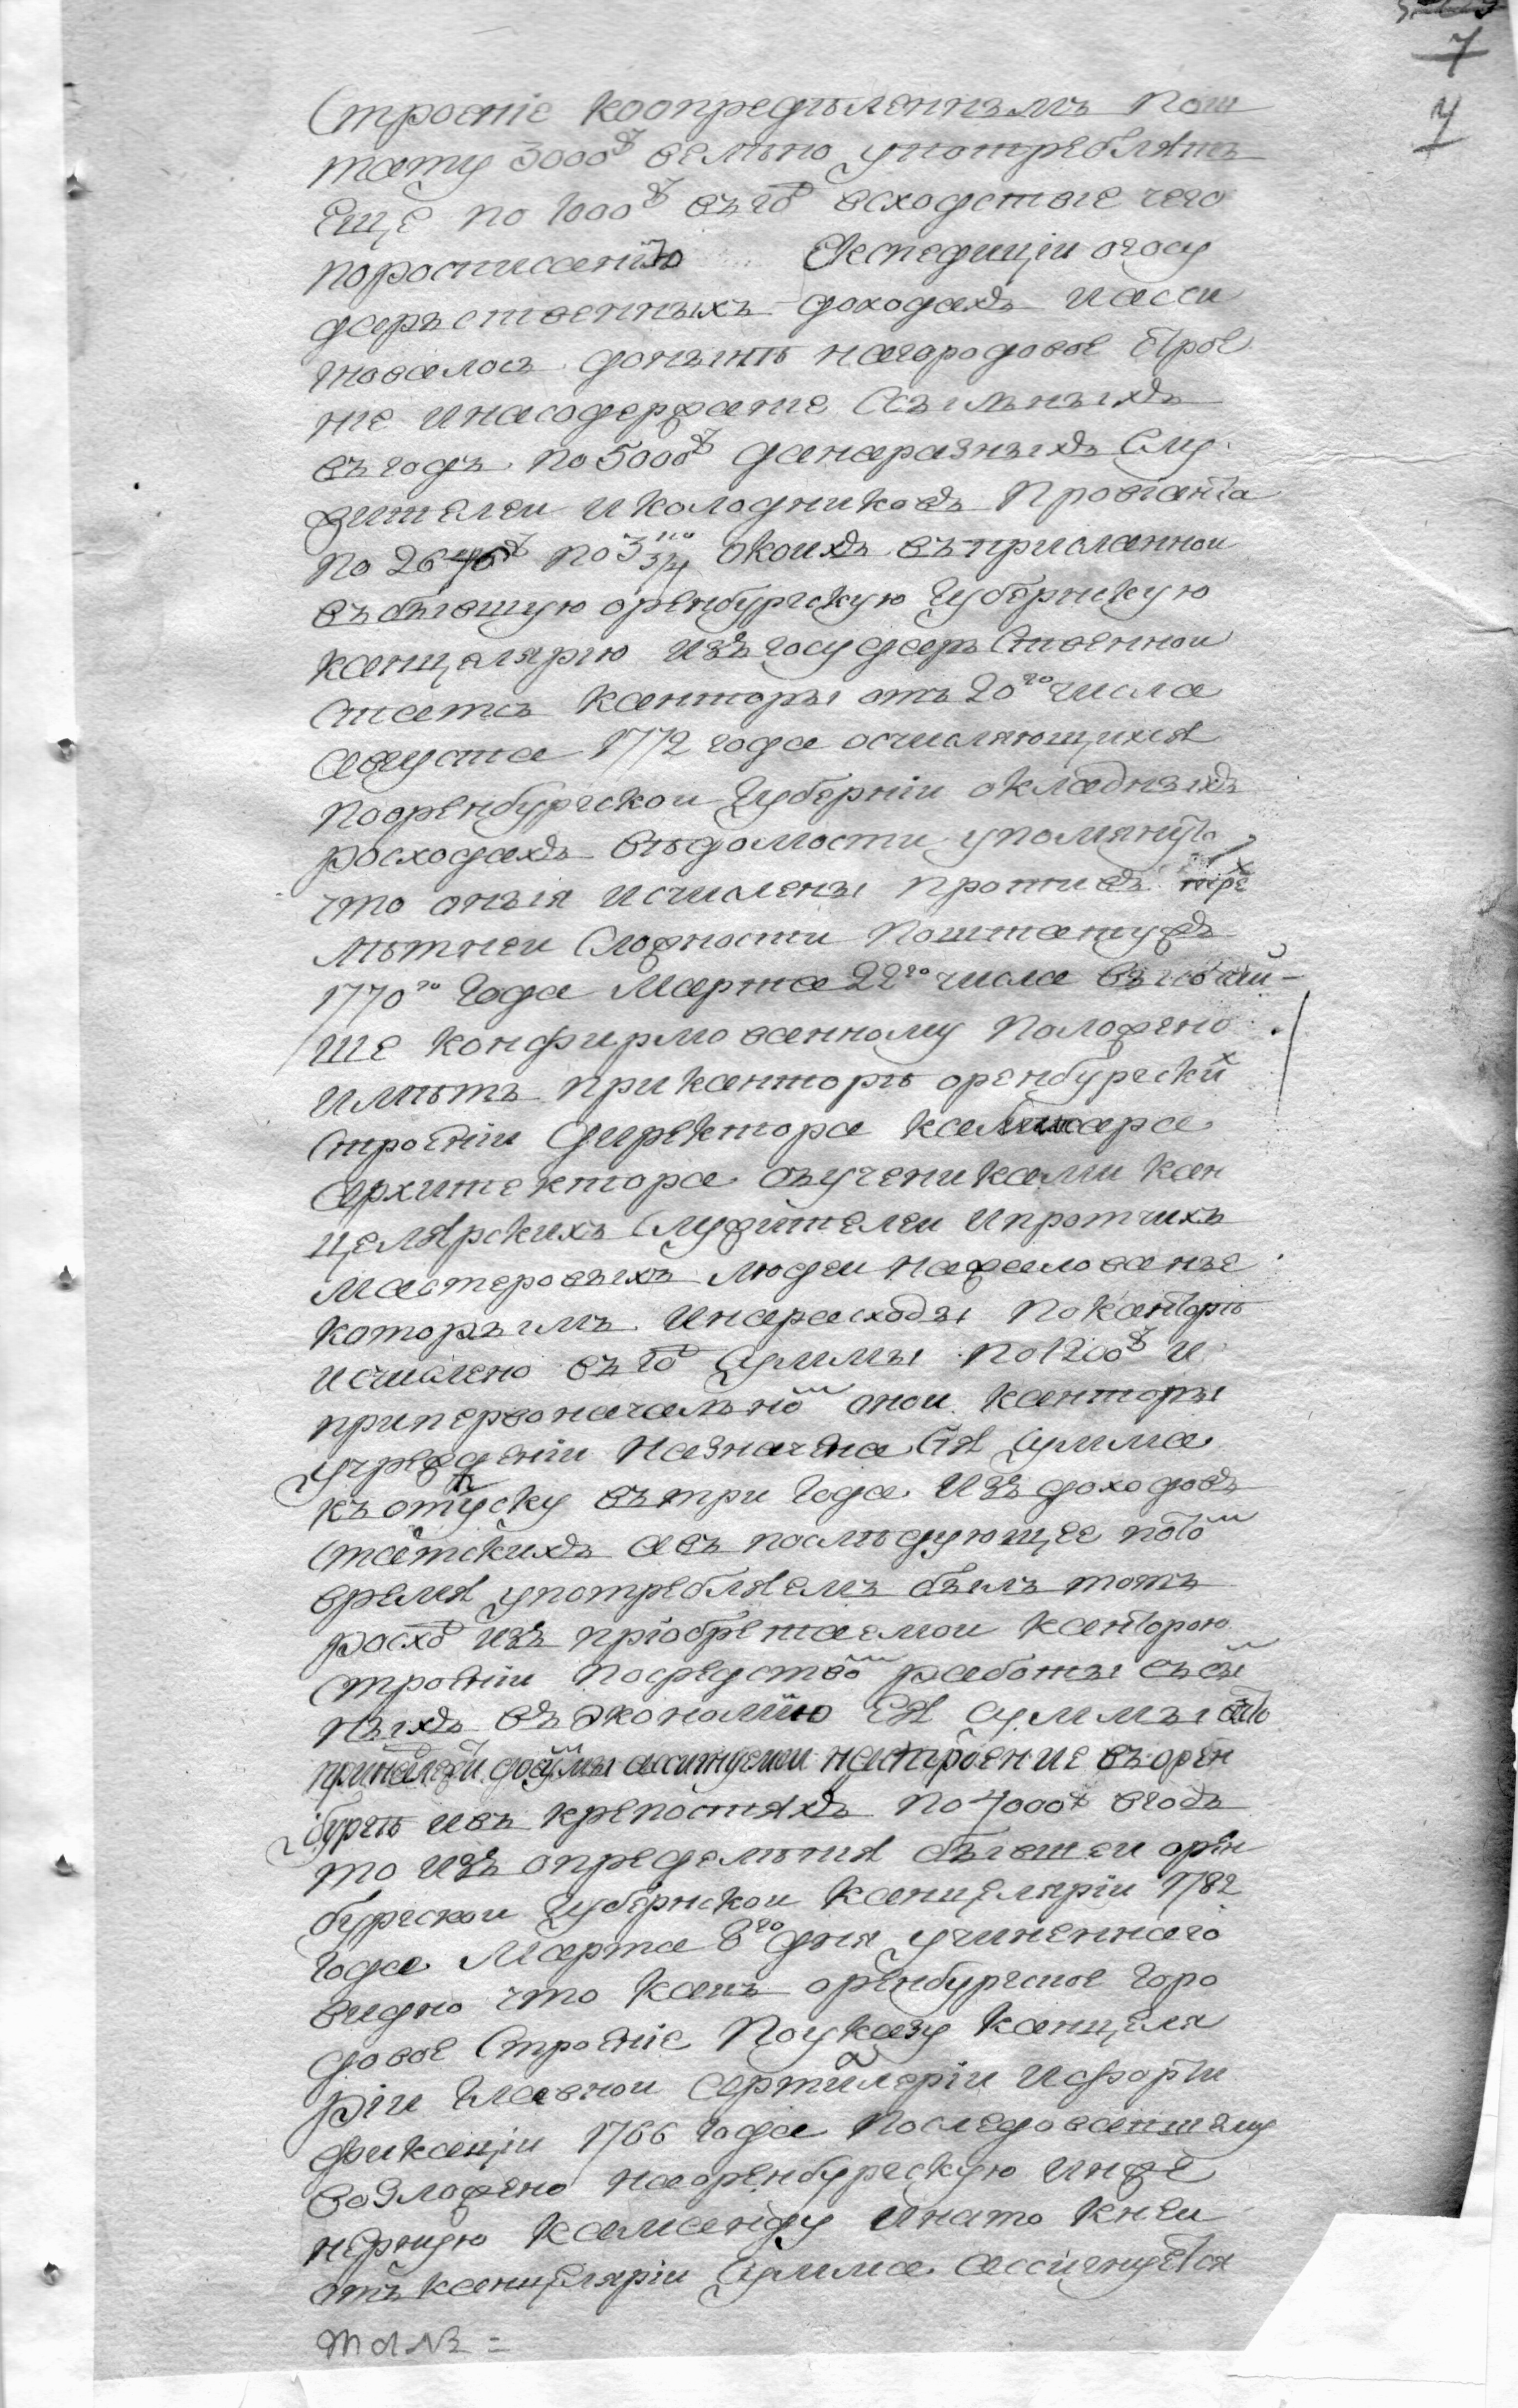 7
4
Строеніе коопределеннымъ пош
тату 3000 велено употреблять
еще по 1000 въ го всходствие чего
поросписанию Експедиціи огосу
дарственныхъ доходахъ иасси
гновалось донынѣ нагородовое строе
ние инасодержание ссыльныхъ
въ годъ по 5000 данаразныхъ слу
жителеи иколодниковъ провианта
по 2646 по 3 3/4 окоихъ въприсланнои
въбывшую оренбургскую губернскую
канцелярию изъ государственнои
статсъ канторы отъ 20го числа
августа 1772 года осчисляющихся
пооренбургскои губерніи окладныхъ
росходахъ вѣдомости упомянуто
что оныя исчислены противъ трех
лѣтнеи сложности поштатужъ
1770го года марта 22го числа высочаи-
ше конфирмованному положено
имѣть приканторѣ оренбургских
строеніи директора
архитектора сучениками кан
целярскихъ служителеи ипротчихъ
мастеровыхъ людеи нажалованье
которымъ инарасходы поканторѣ
исчислено въ го суммы по 1200 и
припервоначальнои онои канторы
учрежденіи назначена сія сумма
къ отпуску вътри года изъ доходовъ
статскихъ авъ послѣдующее потом
время употребляемъ былъ тотъ
росхо изъ пріобретаемои канторою
строеніи посредством работы ссыл
ныхъ въ економию ея суммы что
принадлежи досуммы ассигнуемои настроение въорен
бурге ивъ крепостяхъ по 4000 вгодъ
то изъ определения бывшеи орен
бургскои губернскои канцеляріи 1782
года марта 8го дня учиненного
видно что какъ оренбургское горо
довое строеніе поуказу канцеля
ріи главнои артиллеріи ифорти
фикаціи 1766 года последовавшему
возложено наоренбургскую инже
нерную команду инато кнеи
отъ канцеляріи сумма ассигнуется